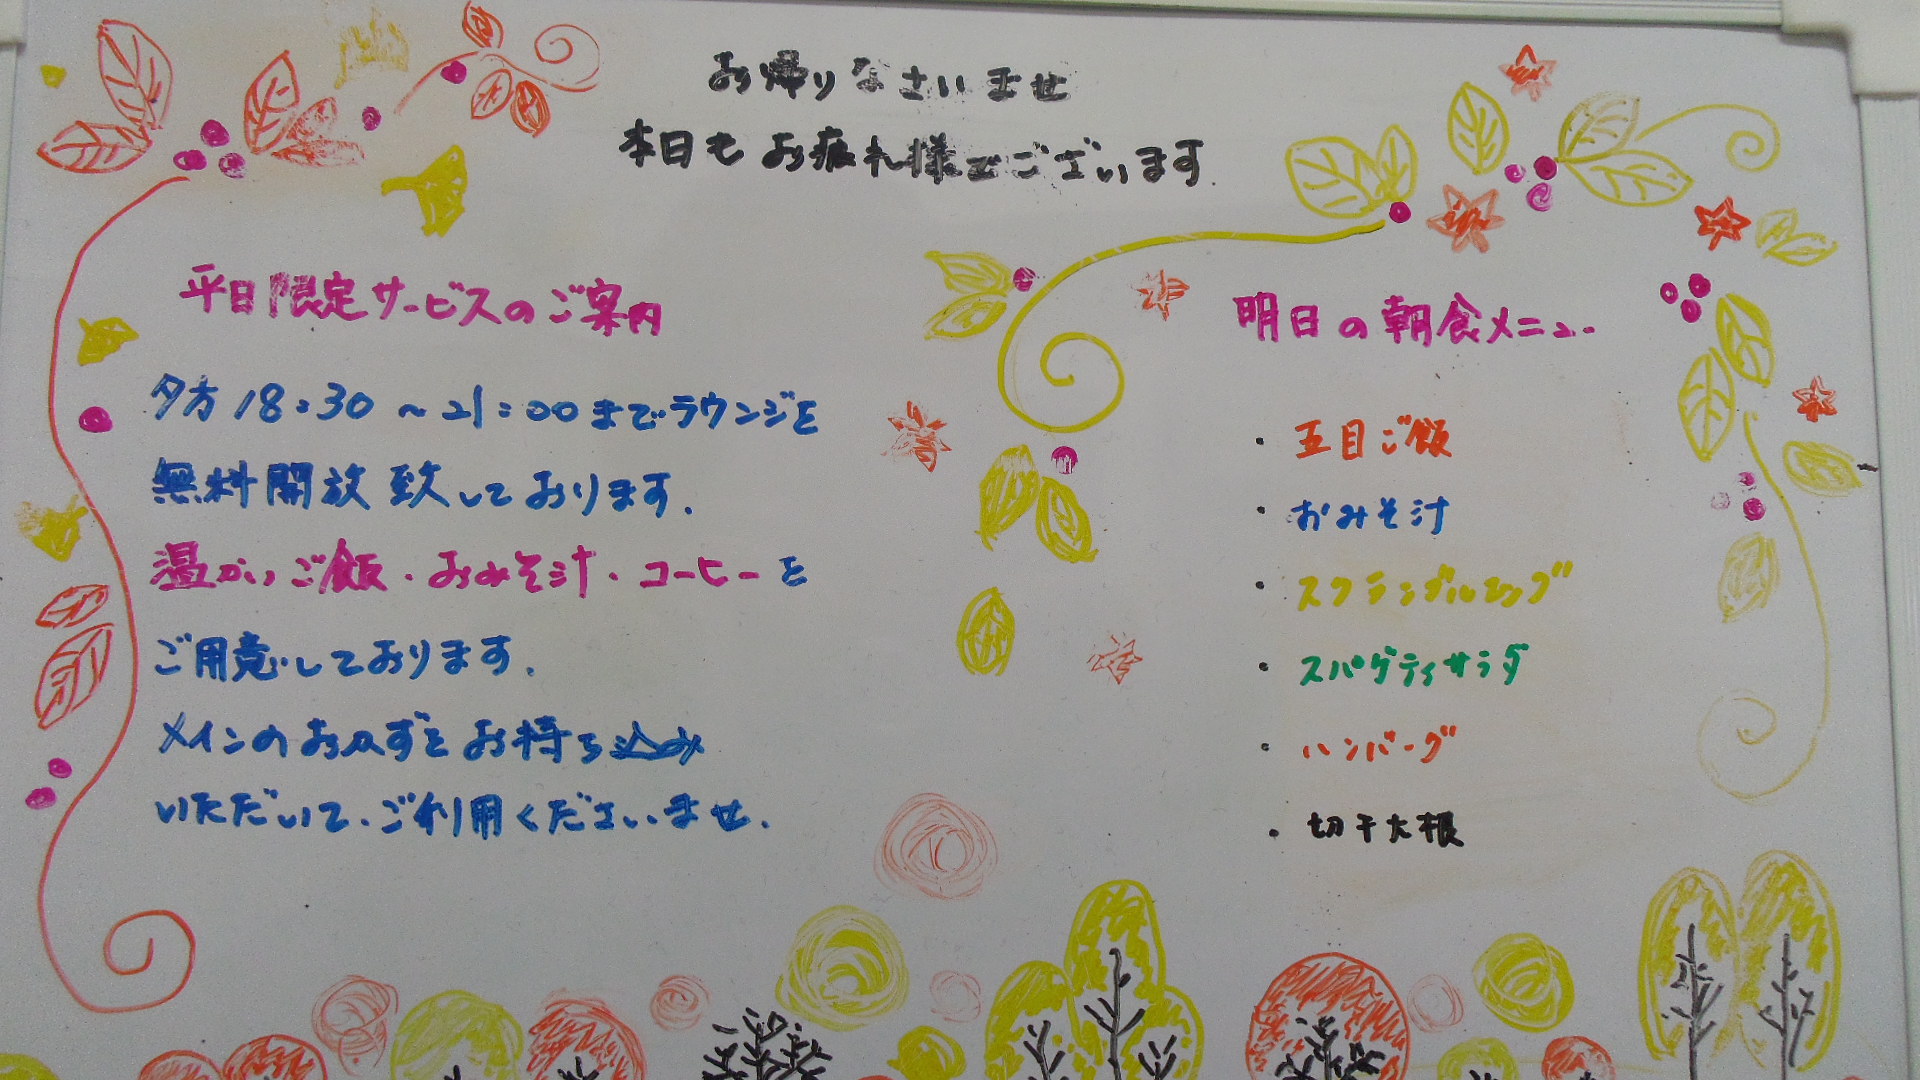 お帰りなさいませ
本日もお疲れ様でございます
平日限定サービスのご案内
夕方18:30~21:00までラウンジを
無料開放致しております.
温かいご飯・おみそ汁・コーヒーを
ご用意しております.
メインのおかずをお持ち込み
いただいて、ご利用くださいませ.
明日の朝食メニュー
・五目ご飯
・おみそ汁
・スクランブルエッグ
・スパゲティサラダ
・ハンバーグ
・切干大根